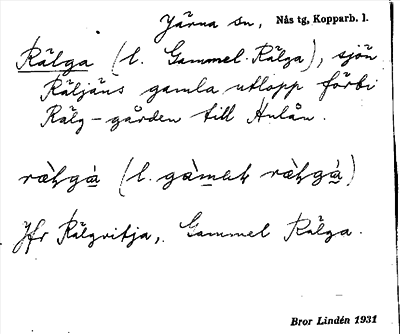 Järna sn, Nås tg, Kopparb. l.
Rälga (l. Gammel-Rälga), sjön
Räljäns gamla utlopp förbi
Rälg-gården till Hulån.
(l.
Jfr Rälgvitja, Gammel Rälga.
Bror Lindén 1931